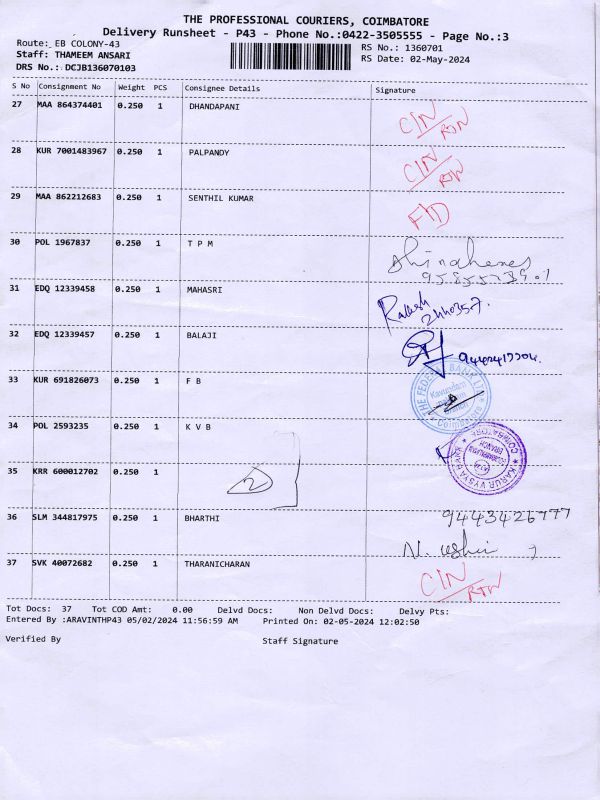 THE PROFESSIONAL COURIERS, COIMBATORE
Delivery Runsheet - P43 - Phone No.:0422-3505555 - Page No.:3
Route: EB COLONY-43
RS No.: 1360701
Staff: THAMEEM ANSARI
RS Date: 02-May-2024
DRS No.: DCJB136070103
S No Consignment No Weight PCS Consignee Details Signature
27 MAA 864374401 0.250 1 DHANDAPANI
C/N/RTN
28 KUR 7001483967 0.250 1 PALPANDY
C/N/RTN
29 MAA 862212683 0.250 1 SENTHIL KUMAR
30 POL 1967837 0.250 1 T P M
31 EDQ 12339458 0.250 1 MAHASRI
Rakesh
2440357.
32 EDQ 12339457 0.250 1 BALAJI
33 KUR 691826073 0.250 1 F B
THE FEDERAL BANK LTD
Coimbatore
34 POL 2593235 0.250 1 K V B
KARUR VYSYA BANK
COIMBATORE
BRANCH
35 KRR 600012702 0.250 1
2
36 SLM 344817975 0.250 1 BHARTHI
9443426777
37 SVK 40072682 0.250 1 THARANICHARAN
C/N/RTN
Tot Docs: 37 Tot COD Amt: 0.00 Delvd Docs: Non Delvd Docs: Delvy Pts:
Entered By :ARAVINTHP43 05/02/2024 11:56:59 AM Printed On: 02-05-2024 12:02:50
Verified By Staff Signature